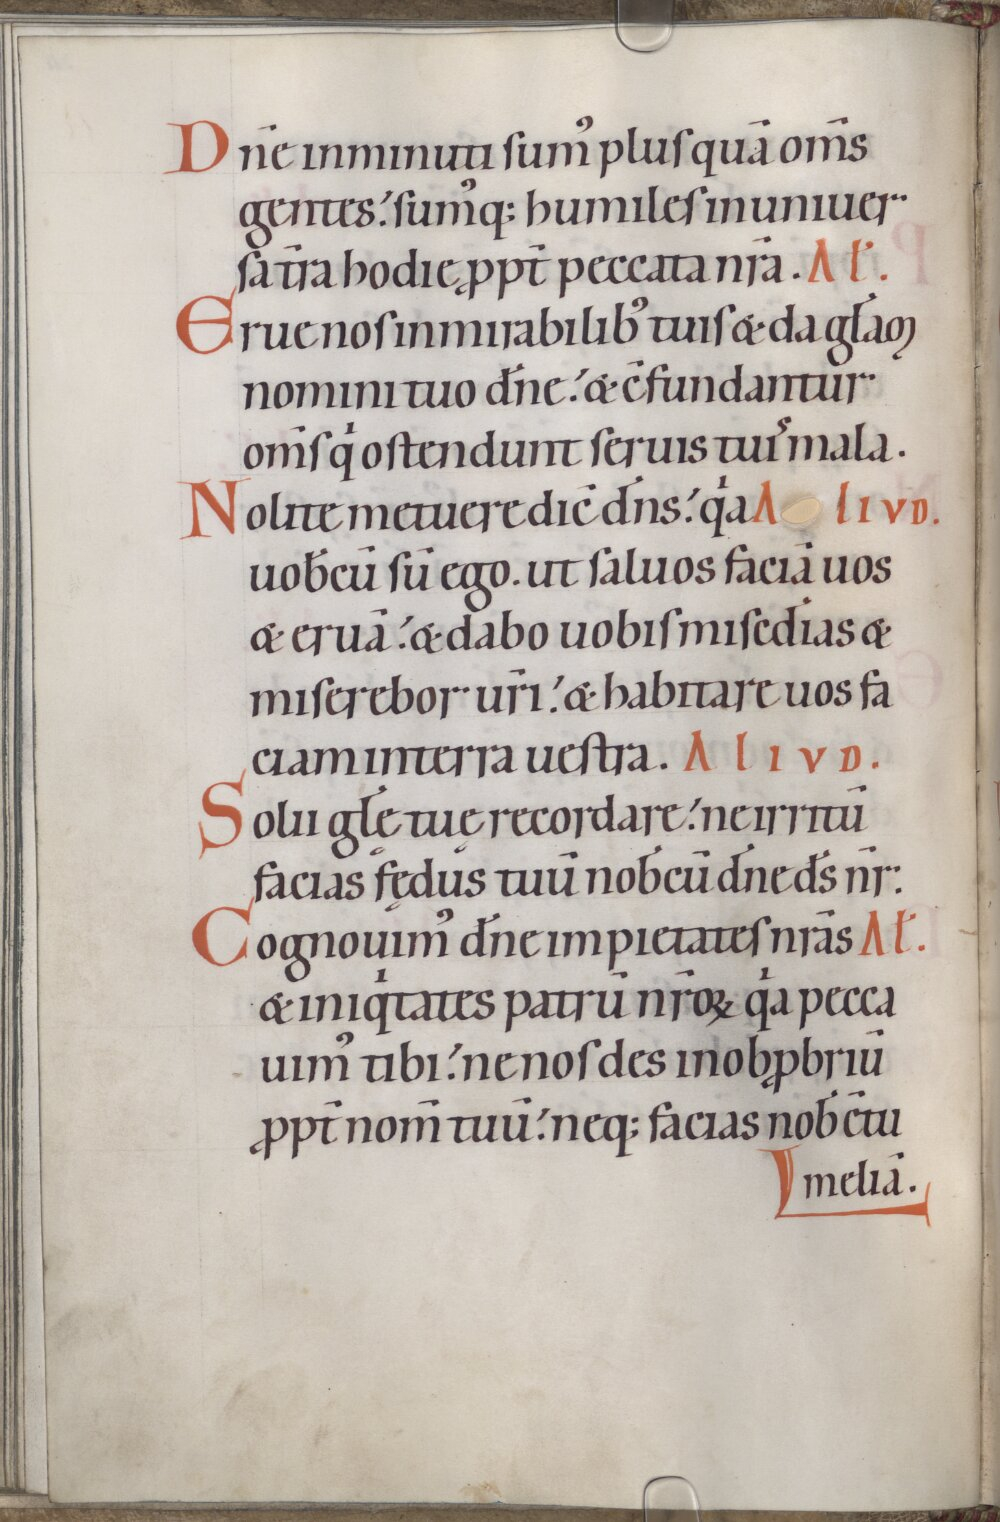 Dn̄e inminuti sumꝰ plus quā om̄s
gentes: sumꝰq; humiles in uniuer
sa tr̄a hodie ꝓpt̄ peccata nr̄a. Al̄.
Erue nos in mirabilibꝰ tuis & da gl̄am
nomini tuo dn̄e: & c̄fundantur
om̄s qͥ ostendunt seruis tuis mala.
Nolite metuere dic̄ dn̄s: qͥa Aliud.
uob̄cū sū ego. ut saluos faciā uos
& eruā: & dabo uobis misedīas &
miserebor ur̄i: & habitare uos fa
ciam in terra uestra. Aliud.
Solii gl̄ę tuę recordare: ne irritū
facias fędus tuū nob̄cū dn̄e ds̄ nr̄:
Cognouimꝰ dn̄e impietates nrās Al̄.
& iniqͥtates patrū nr̄oꝝ qͥa pecca
uimꝰ tibi: ne nos des in obꝓbriū
ꝓpt̄ nom̄ tuū: neq; facias nob̄ c̄tu
meliā.